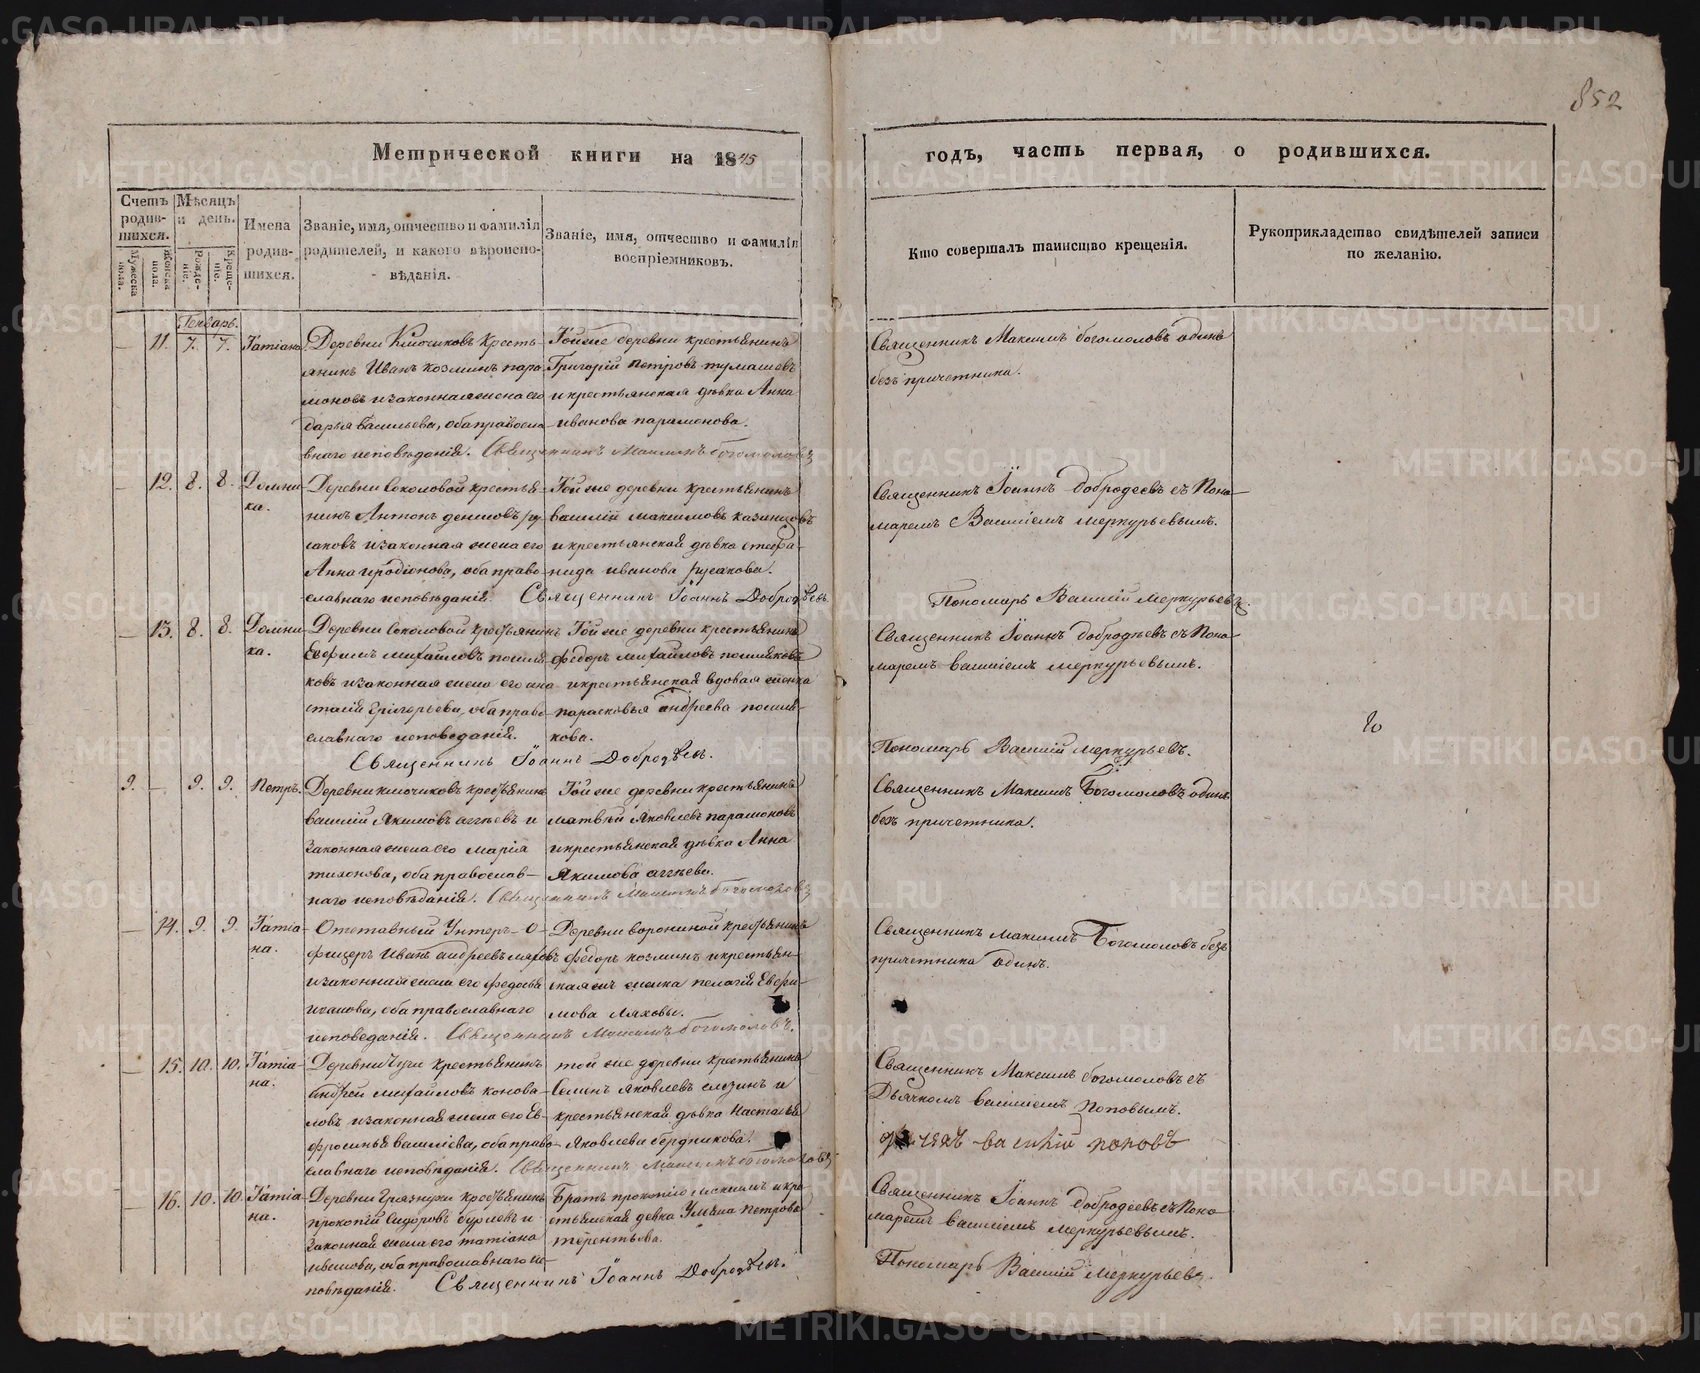 852
Метрической книги на 1845
годъ, часть первая, о родившихся.
Счетъ родившихся.
Мужеска пола.
Женска пола.
Мѣсяцъ и день.
Рожденіе.
Крещеніе.
Имена родившихся.
Званіе, имя, отчество и фамилія родителей, и какого вѣроисповѣданія.
Званіе, имя, отчество и фамилія воспріемниковъ.
Кто совершалъ таинство крещенія.
Рукоприкладство свидѣтелей записи по желанію.
Генварь.
11. 7. 7. Татіана
Деревни Ключиковъ кресть-
янинъ Иванъ Козминъ пара-
моновъ и законная жена его
дарья васильева, оба правосла-
внаго исповѣданія. Священникъ Максимъ богомоловъ
Той же деревни крестьянинъ
Григорій петровъ тумашевъ
и крестьянская дѣвка Анна
иванова парамонова.
Священникъ Максимъ богомоловъ одинъ
безъ причетника.
12. 8. 8. Домни-
ка.
Деревни Соколовой крестья-
нинъ Антонъ денисовъ ру-
саковъ и законная жена его
Анна иродіонова, оба право-
славнаго исповѣданія. Священникъ Іоаннъ Добродѣевъ
Той же деревни крестьянинъ
василій максимовъ казанцовъ
и крестьянская дѣвка стефа-
нида иванова русакова.
Священникъ Іоаннъ добродеевъ съ Поно-
маремъ Василіемъ меркурьевымъ.
Пономарь Василій меркурьевъ.
13. 8. 8. Домни-
ка.
Деревни Соколовой крестьянинъ
Евфимъ михайловъ
ковъ и законная жена его ана-
стасія григорьева, оба право-
славнаго исповеданія.
Священникъ Іоаннъ Добродѣевъ.
Той же деревни крестьянинъ
федоръ михайловъ
и крестьянская вдовая женка
парасковья андреева
кова.
Священникъ Іоаннъ добродѣевъ съ Поно-
маремъ василіемъ меркурьевымъ.
Пономарь Василій меркурьевъ.
9. 9. 9. Петръ.
Деревни ключиковъ крестьянинъ
василій Якимовъ аггѣевъ и
законная жена его марія
тихонова, оба православ-
наго исповѣданія. Священникъ Максимъ богомоловъ
Той же деревни крестьянинъ
матвѣй Яковлевъ парамоновъ
и крестьянская дѣвка Анна
Якимова аггѣева.
Священникъ Максимъ Богомоловъ одинъ
безъ причетника.
14. 9. 9. Татіа-
на.
Отставный Унтеръ-о-
фицеръ Иванъ андреевъ ляховъ
и законная жена его федосья
оба православнаго
исповеданія. Священникъ Максимъ богомоловъ.
Деревни ворониной крестьянинъ
федоръ козминъ и крестьян-
женка пелагія Евфи-
мова Ляховы.
Священникъ максимъ Богомоловъ безъ
причетника одинъ.
15. 10. 10. Татіа-
на.
Деревни крестьянинъ
андрей михайловъ конова-
ловъ и законная жена его Ев-
фросинья василіева, оба право-
славнаго исповѣданія. Священникъ Максимъ богомоловъ
той же деревни крестьянинъ
Семенъ яковлевъ и
крестьянская дѣвка Настасья
Яковлева бердникова.
Священникъ Максимъ богомоловъ съ
Дьячкомъ василіемъ поповымъ.
дьячекъ василій поповъ
16. 10. 10. Татіа-
на.
Деревни Грязнухи крестьянинъ
прокопій Сидоровъ и
законная жена его татіана
оба православнаго ис-
повѣданія. Священникъ Іоаннъ Добродѣевъ.
Братъ прокопію максимъ и кре-
стьянская девка Ульяна петрова
терентьева.
Священникъ Іоаннъ добродеевъ съ Поно-
маремъ василіемъ меркурьевымъ.
Пономарь Василій меркурьевъ.
METRIKI.GASO-URAL.RU